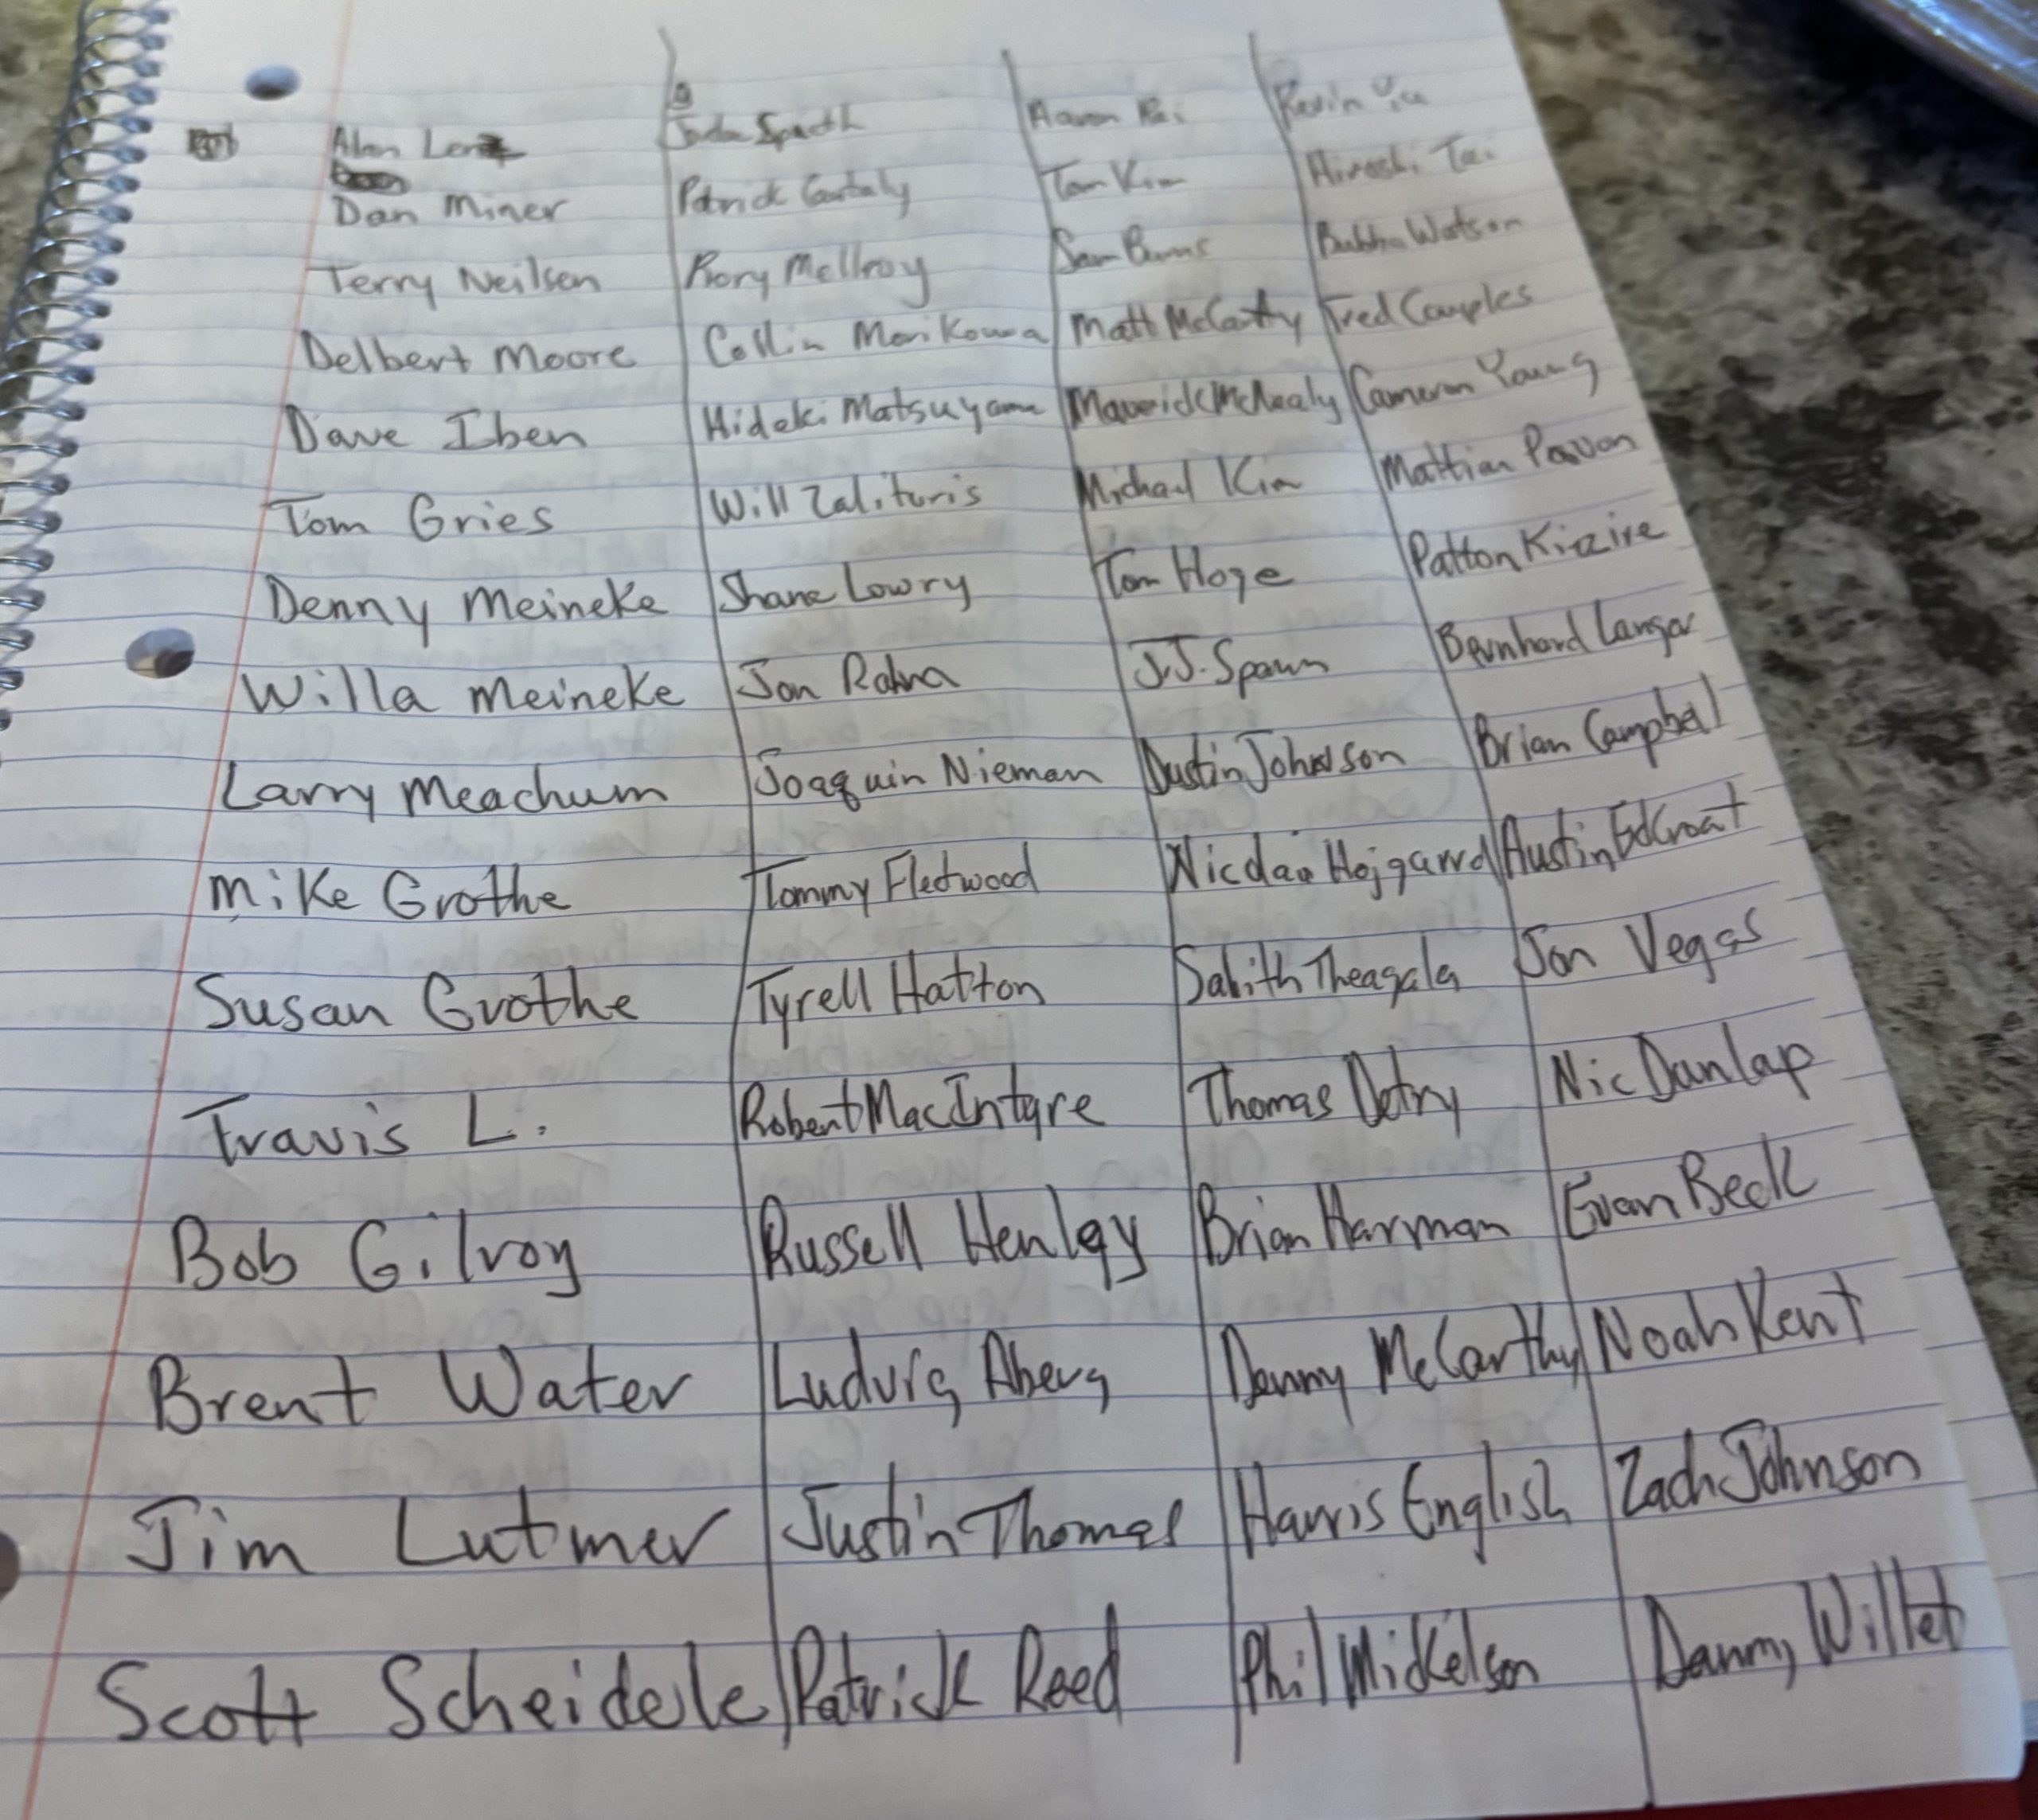 Alan Jordan Spieth Aaron Rai Kevin Yu
Dan Miner Patrick Cantaly Tom Kim Hiroshi Tai
Terry Neilsen Rory McIlroy Sam Burns Bubba Watson
Delbert Moore Collin Morikowa Matt McCarty Fred Couples
Dave Iben Hideki Matsuyama Maverick McNealy Cameron Young
Tom Gries Will Zalituris Michael Kim Mattian Pavon
Denny Meineke Shane Lowry Tom Hoge Patton Kizire
Willa Meineke Jon Rahm J.J. Spawn Bernhard Langer
Larry Meachum Joaquin Nieman Dustin Johnson Brian Campbell
Mike Grothe Tommy Fleetwood Nicolai Hojgarrd Austin EdCroat
Susan Grothe Tyrell Hatton Sahith Theagala Jon Vegas
Travis L. Robert MacIntyre Thomas Detry Nic Dunlap
Bob Gilroy Russell Henley Brian Harman Evan Beck
Brent Water Ludvig Aberg Denny McCarthy Noah Kent
Jim Lutmer Justin Thomas Harris English Zach Johnson
Scott Scheidele Patrick Reed Phil Mickelson Danny Willet